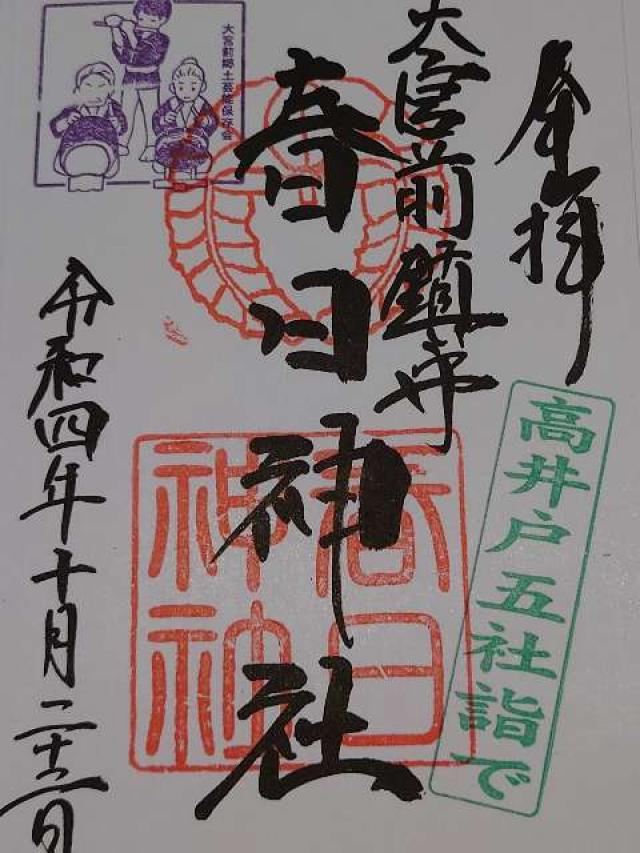 奉拝
大宮前鎮守
春日神社
令和四年十月二十二日
高井戸五社詣で
大宮前郷土芸能保存会
春日
神社